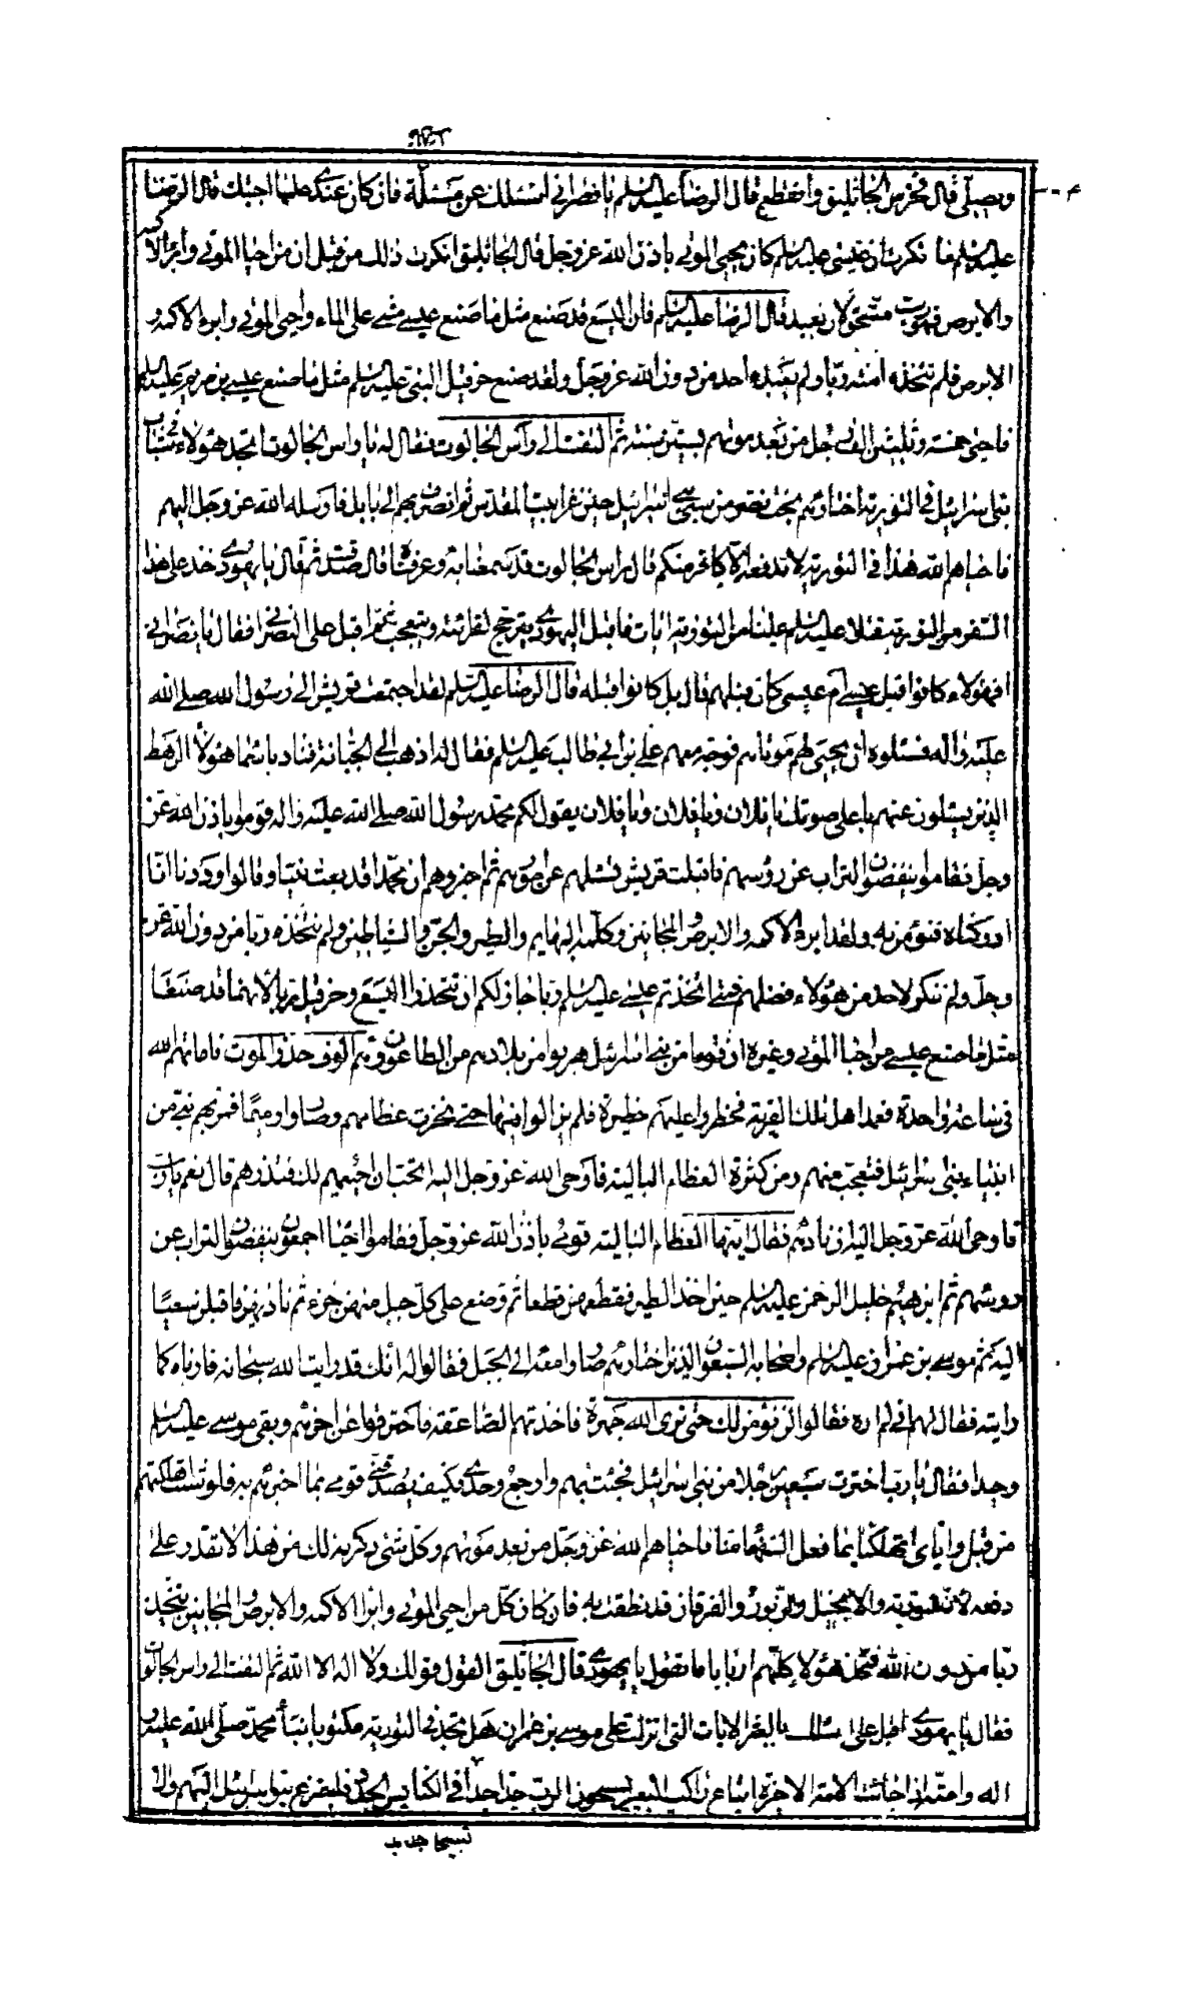 ويصلي قال فخرس الجاثليق وانقطع قال الرضا عليه السلم يا نصراني اسئلك عن مسئلة قال فان كان عندي علمها اجبتك قال الرضا
عليه السلم ما نكرت ان عيسى عليه السلم كان يحيى الموتى باذن الله عز وجل قال الجاثليق انكرت ذلك من قبل ان من احيا الموتى وابرأ الاكمه
والابرص فهو رب مستحق لان يعبد قال الرضا عليه السلم فان اليسع قد صنع مثل ما صنع عيسى مشى على الماء واحيى الموتى وابرء الاكمه و
الابرص فلم تتخذه امته ربا ولم يعبده احد من دون الله عز وجل ولقد صنع حزقيل النبي عليه السلم مثل ما صنع عيسى بن مريم عليه السلم
فاحيى خمسة وثلثين الف رجل من بعد موتهم بستين سنة ثم التفت الى راس الجالوت فقال له يا راس الجالوت اتجد هؤلاء في شباب
بني اسرائيل في التورية اختارهم بخت نصر من سبي بني اسرائيل حين غزا بيت المقدس ثم انصرف بهم الى بابل فارسله الله عز وجل اليهم
فاحياهم الله هذا في التورية لا يدفعه الا كافر منكم قال راس الجالوت قد سمعنا به وعرفناه قال صدقت ثم قال يا يهودي خذ على هذا
السفر من التورية فتلا عليه السلم علينا من التورية ايات فاقبل اليهودي يترجح لقرائته ويتعجب ثم اقبل على النصراني فقال يا نصراني
افهؤلاء كانوا قبل عيسى ام عيسى كان قبلهم قال بل كانوا قبله قال الرضا عليه السلم لقد اجتمعت قريش الى رسول الله صلى الله
عليه واله فسئلوه ان يحيى لهم موتاهم فوجه معهم علي بن ابي طالب عليه السلم فقال له اذهب الى الجبانة فناد باسماء هؤلاء الرهط
الذين يسئلون عنهم باعلى صوتك يا فلان ويا فلان ويا فلان يقول لكم محمد رسول الله صلى الله عليه واله قوموا باذن الله عز
وجل فقاموا ينفضون التراب عن رؤسهم فاقبلت قريش تسئلهم عن امورهم ثم اخبروهم ان محمدا قد بعث نبيا وقالوا وددنا انا
ادركناه فنؤمن به ولقد ابرء الاكمه والابرص والمجانين وكلمه البهايم والطير والجن والشياطين ولم نتخذه ربا من دون الله عز
وجل ولم ننكر لاحد من هؤلاء فضلهم فمتى اتخذتم عيسى عليه السلم ربا جاز لكم ان تتخذوا اليسع وحزقيل ربا لانهما قد صنعا
مثل ما صنع عيسى من احيا الموتى وغيره ان قوما من بني اسرائيل هربوا من بلادهم من الطاعون وهم الوف حذر الموت فاماتهم الله
في ساعة واحدة فعمد اهل تلك القرية فحظروا عليهم حظيرة فلم يزالوا فيها حتى نخرت عظامهم وصاروا رميما فمر بهم نبي من
انبياء بني اسرائيل فتعجب منهم ومن كثرة العظام البالية فاوحى الله عز وجل اليه اتحب ان احييهم لك فتنذرهم قال نعم يا رب
فاوحى الله عز وجل اليه ان نادهم فقال ايتها العظام البالية قومي باذن الله عز وجل فقاموا احيا اجمعون ينفضون التراب عن
رؤسهم ثم ابرهيم خليل الرحمن عليه السلم حين اخذ الطير فقطعهن قطعا ثم وضع على كل جبل منهن جزء ثم ناديهن فاقبلن سعيا
اليه ثم موسى بن عمران عليه السلم واصحابه السبعون الذين اختارهم صاروا معه الى الجبل فقالوا له انك قد رايت الله سبحانه فارناه كما
رايته فقال لهم اني لم اره فقالوا لن نؤمن لك حتى نرى الله جهرة فاخذتهم الصاعقة فاحترقوا عن اخرهم وبقي موسى عليه السلم
وحيدا فقال يا رب اخترت سبعين رجلا من بني اسرائيل فجئت بهم وارجع وحدي فكيف يصدقني قومي بما اخبرهم به فلو شئت اهلكتهم
من قبل واياى اتهلكنا بما فعل السفهاء منا فاحياهم الله عز وجل من بعد موتهم وكل شئ ذكرته لك من هذا لا تقدر على
دفعه لان التورية والانجيل والزبور والفرقان قد نطقت به فان كان كل من احيى الموتى وابرا الاكمه والابرص والمجانين يتخذ
ربا من دون الله فاتخذ هؤلاء كلهم اربابا ما تقول يا يهودي قال الجاثليق القول قولك ولا اله الا الله ثم التفت الى راس الجالوت
فقال يا يهودي اقبل على اسئلك بالعشر الايات التي انزلت على موسى بن عمران هل تجد في التورية مكتوبا بنبأ محمد صلى الله عليه و
اله وامته اذا جائت الامة الاخرة اتباع راكب البعير يسبحون الرب جدا جدا في الكنايس الجدد فليفزع بنو اسرائيل اليهم والى
تسبيحا جديدا